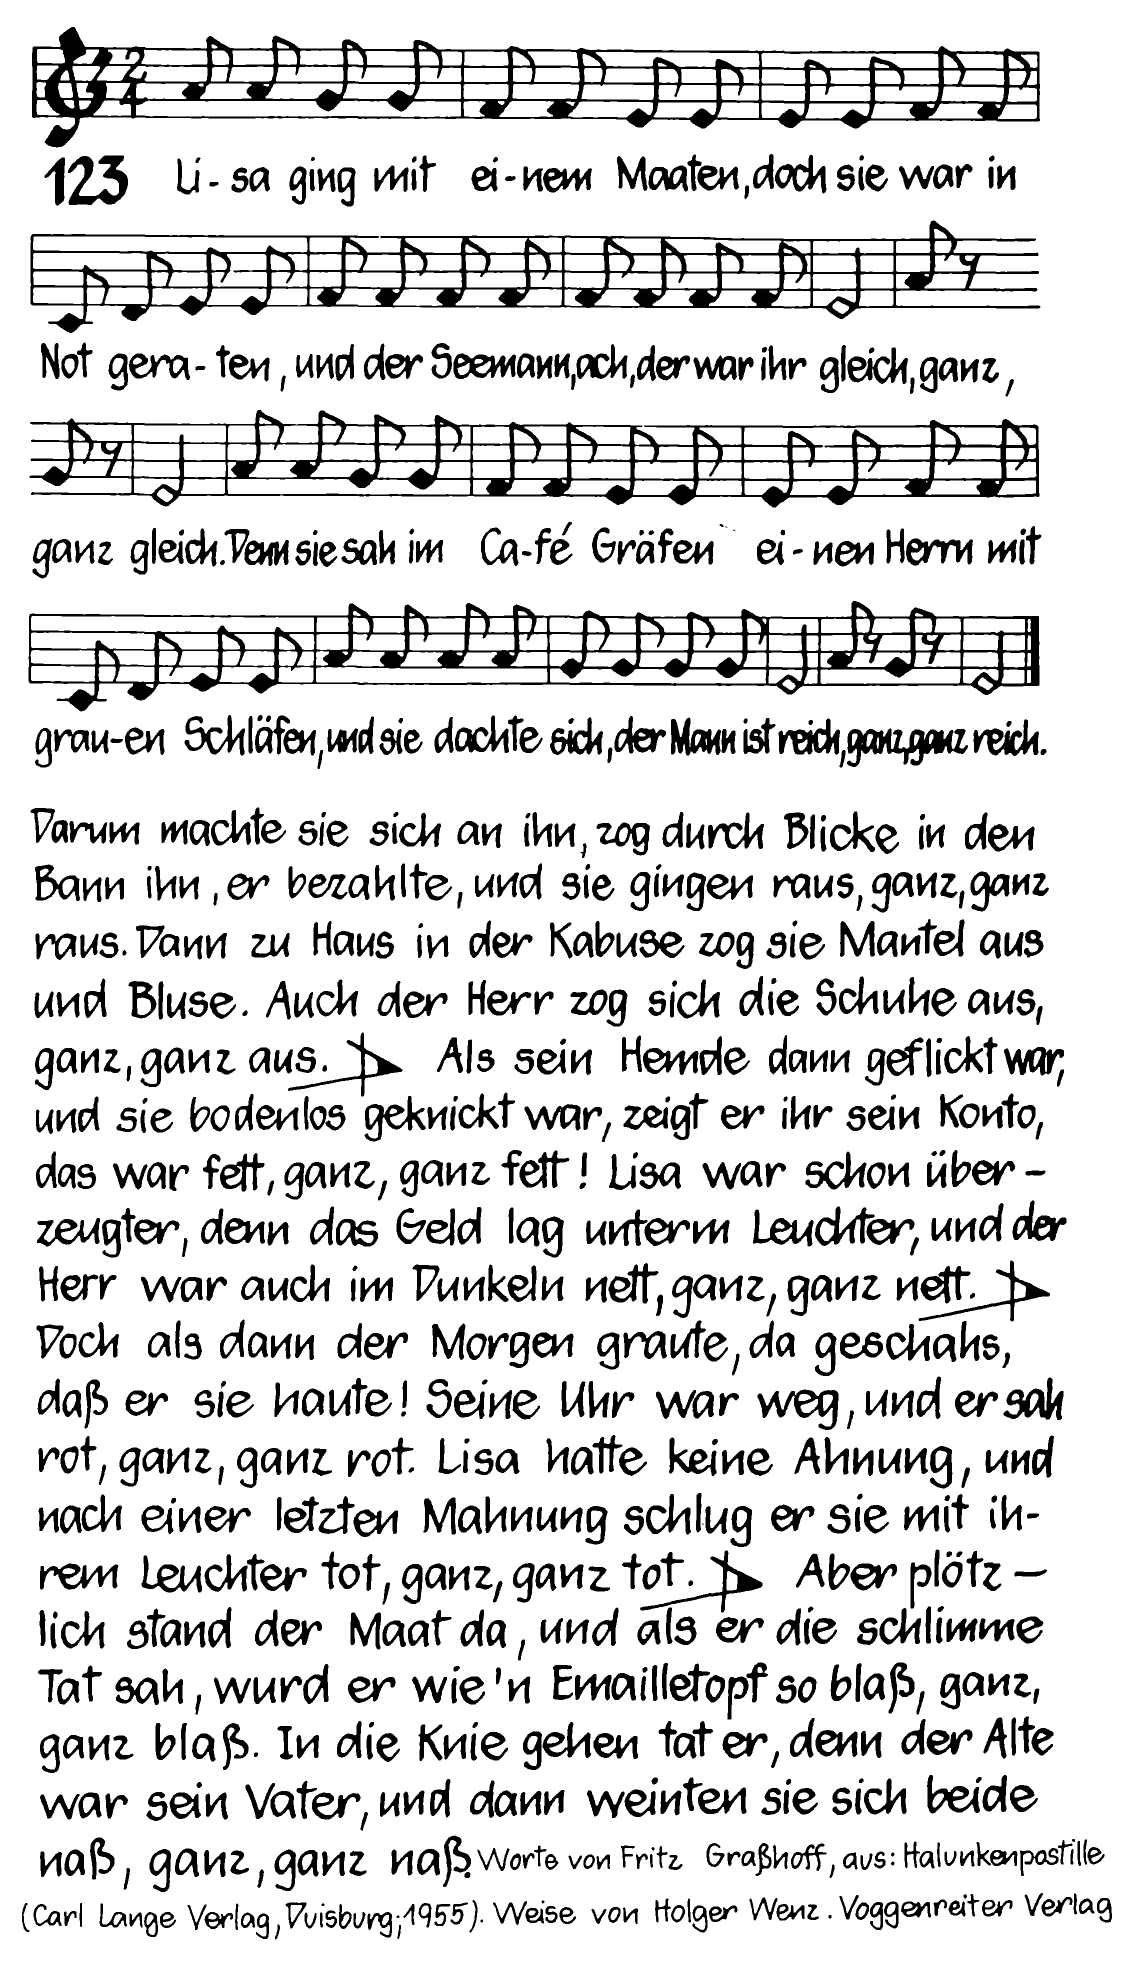 2
4
123 Li-sa ging mit ei-nem Maaten, doch sie war in
Not gera-ten, und der Seemann, ach, der war ihr gleich, ganz,
ganz gleich. Denn sie sah im Ca-fé Gräfen ei-nen Herrn mit
grau-en Schläfen, und sie dachte sich, der Mann ist reich, ganz, ganz reich.
Darum machte sie sich an ihn, zog durch Blicke in den
Bann ihn, er bezahlte, und sie gingen raus, ganz, ganz
raus. Dann zu Haus in der Kabuse zog sie Mantel aus
und Bluse. Auch der Herr zog sich die Schuhe aus,
ganz, ganz aus. Als sein Hemde dann geflickt war,
und sie bodenlos geknickt war, zeigt er ihr sein Konto,
das war fett, ganz, ganz fett! Lisa war schon über-
zeugter, denn das Geld lag unterm Leuchter, und der
Herr war auch im Dunkeln nett, ganz, ganz nett.
Doch als dann der Morgen graute, da geschahs,
daß er sie haute! Seine Uhr war weg, und er sah
rot, ganz, ganz rot. Lisa hatte keine Ahnung, und
nach einer letzten Mahnung schlug er sie mit ih-
rem Leuchter tot, ganz, ganz tot. Aber plötz-
lich stand der Maat da, und als er die schlimme
Tat sah, wurd er wie'n Emailletopf so blaß, ganz,
ganz blaß. In die Knie gehen tat er, denn der Alte
war sein Vater, und dann weinten sie sich beide
naß, ganz, ganz naß. Worte von Fritz Graßhoff, aus: Halunkenpostille
(Carl Lange Verlag, Duisburg, 1955). Weise von Holger Wenz. Voggenreiter Verlag